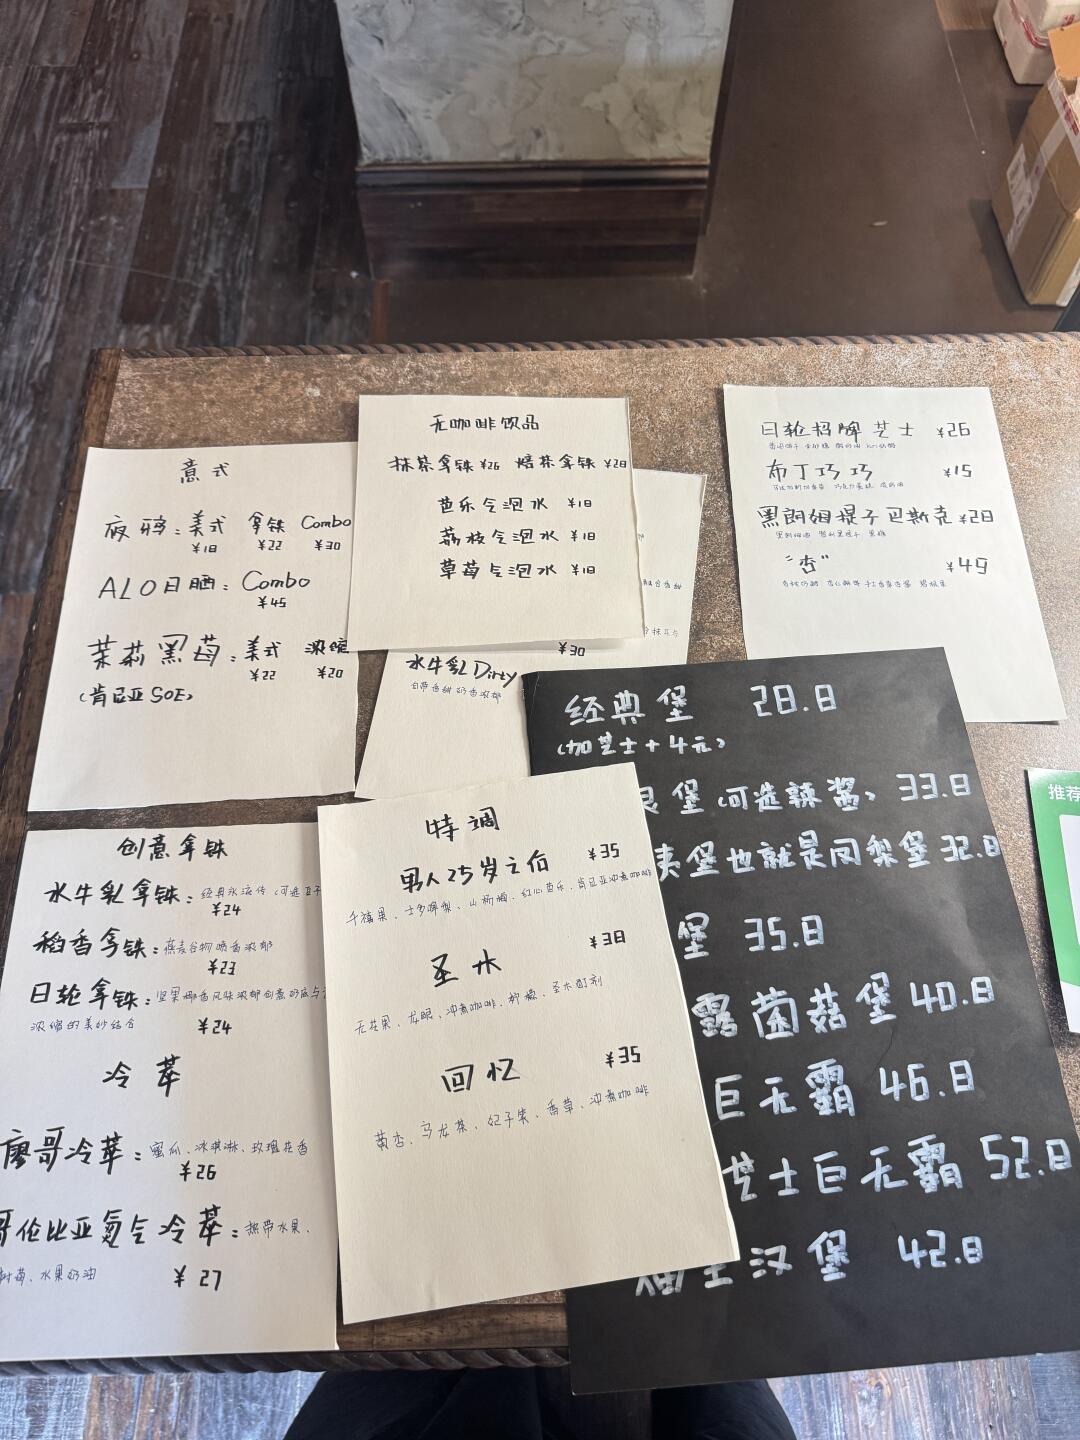 意式
疯鸦：美式 拿铁 Combo
¥18 ¥22 ¥30
ALO日晒：Combo
¥45
茉莉黑莓：美式 浓缩
¥22 ¥20
（肯尼亚SOE）
无咖啡饮品
抹茶拿铁¥26 焙茶拿铁¥28
芭乐气泡水 ¥18
荔枝气泡水 ¥18
草莓气泡水 ¥18
¥30
水牛乳Dirty
自带香甜奶香浓郁
日轮招牌芝士 ¥26
布丁巧巧 ¥15
黑朗姆提子巴斯克¥28
“杏” ¥49
经典堡 28.8
（加芝士+4元）
堡（可选辣酱） 33.8
夷堡也就是凤梨堡 32.8
堡 35.8
露菌菇堡 40.8
巨无霸 46.8
芝士巨无霸 52.8
汉堡 42.8
推荐
创意拿铁
水牛乳拿铁：经典永流传（可选豆子
¥24
稻香拿铁：燕麦谷物喷香浓郁
¥23
日轮拿铁：坚果椰香风味浓郁创意奶底与
浓缩的美妙结合 ¥24
冷萃
廖哥冷萃：蜜瓜、冰淇淋、玫瑰花香
¥26
哥伦比亚氮气冷萃：热带水果、
树莓、水果奶油 ¥27
特调
男人25岁之后 ¥35
千禧果、士多啤梨、山杨梅、红心芭乐、肯尼亚冲煮咖啡
圣水 ¥38
无花果、龙眼、冲煮咖啡、柠檬、圣水酊剂
回忆 ¥35
黄杏、乌龙茶、妃子笑、香草、冲煮咖啡